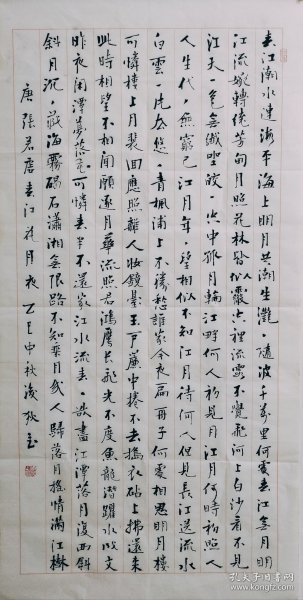 春江潮水連海平海上明月共潮生灩灩隨波千萬里何處春江無月明
江流宛轉繞芳甸月照花林皆似霰空裡流霜不覺飛汀上白沙看不見
江天一色無纖塵皎皎空中孤月輪江畔何人初見月江月何時初照人
人生代代無窮已江月年年望相似不知江月待何人但見長江送流水
白雲一片去悠悠青楓浦上不勝愁誰家今夜扁舟子何處相思明月樓
可憐樓上月裴回應照離人妝鏡臺玉戶簾中捲不去擣衣砧上拂還來
此時相望不相聞願逐月華流照君鴻雁長飛光不度魚龍潛躍水成文
昨夜閑潭夢落花可憐春半不還家江水流春去欲盡江潭落月復西斜
斜月沉沉藏海霧碣石瀟湘無限路不知乘月幾人歸落月搖情滿江樹
唐張若虛春江花月夜 乙巳中秋
孔夫子旧书网